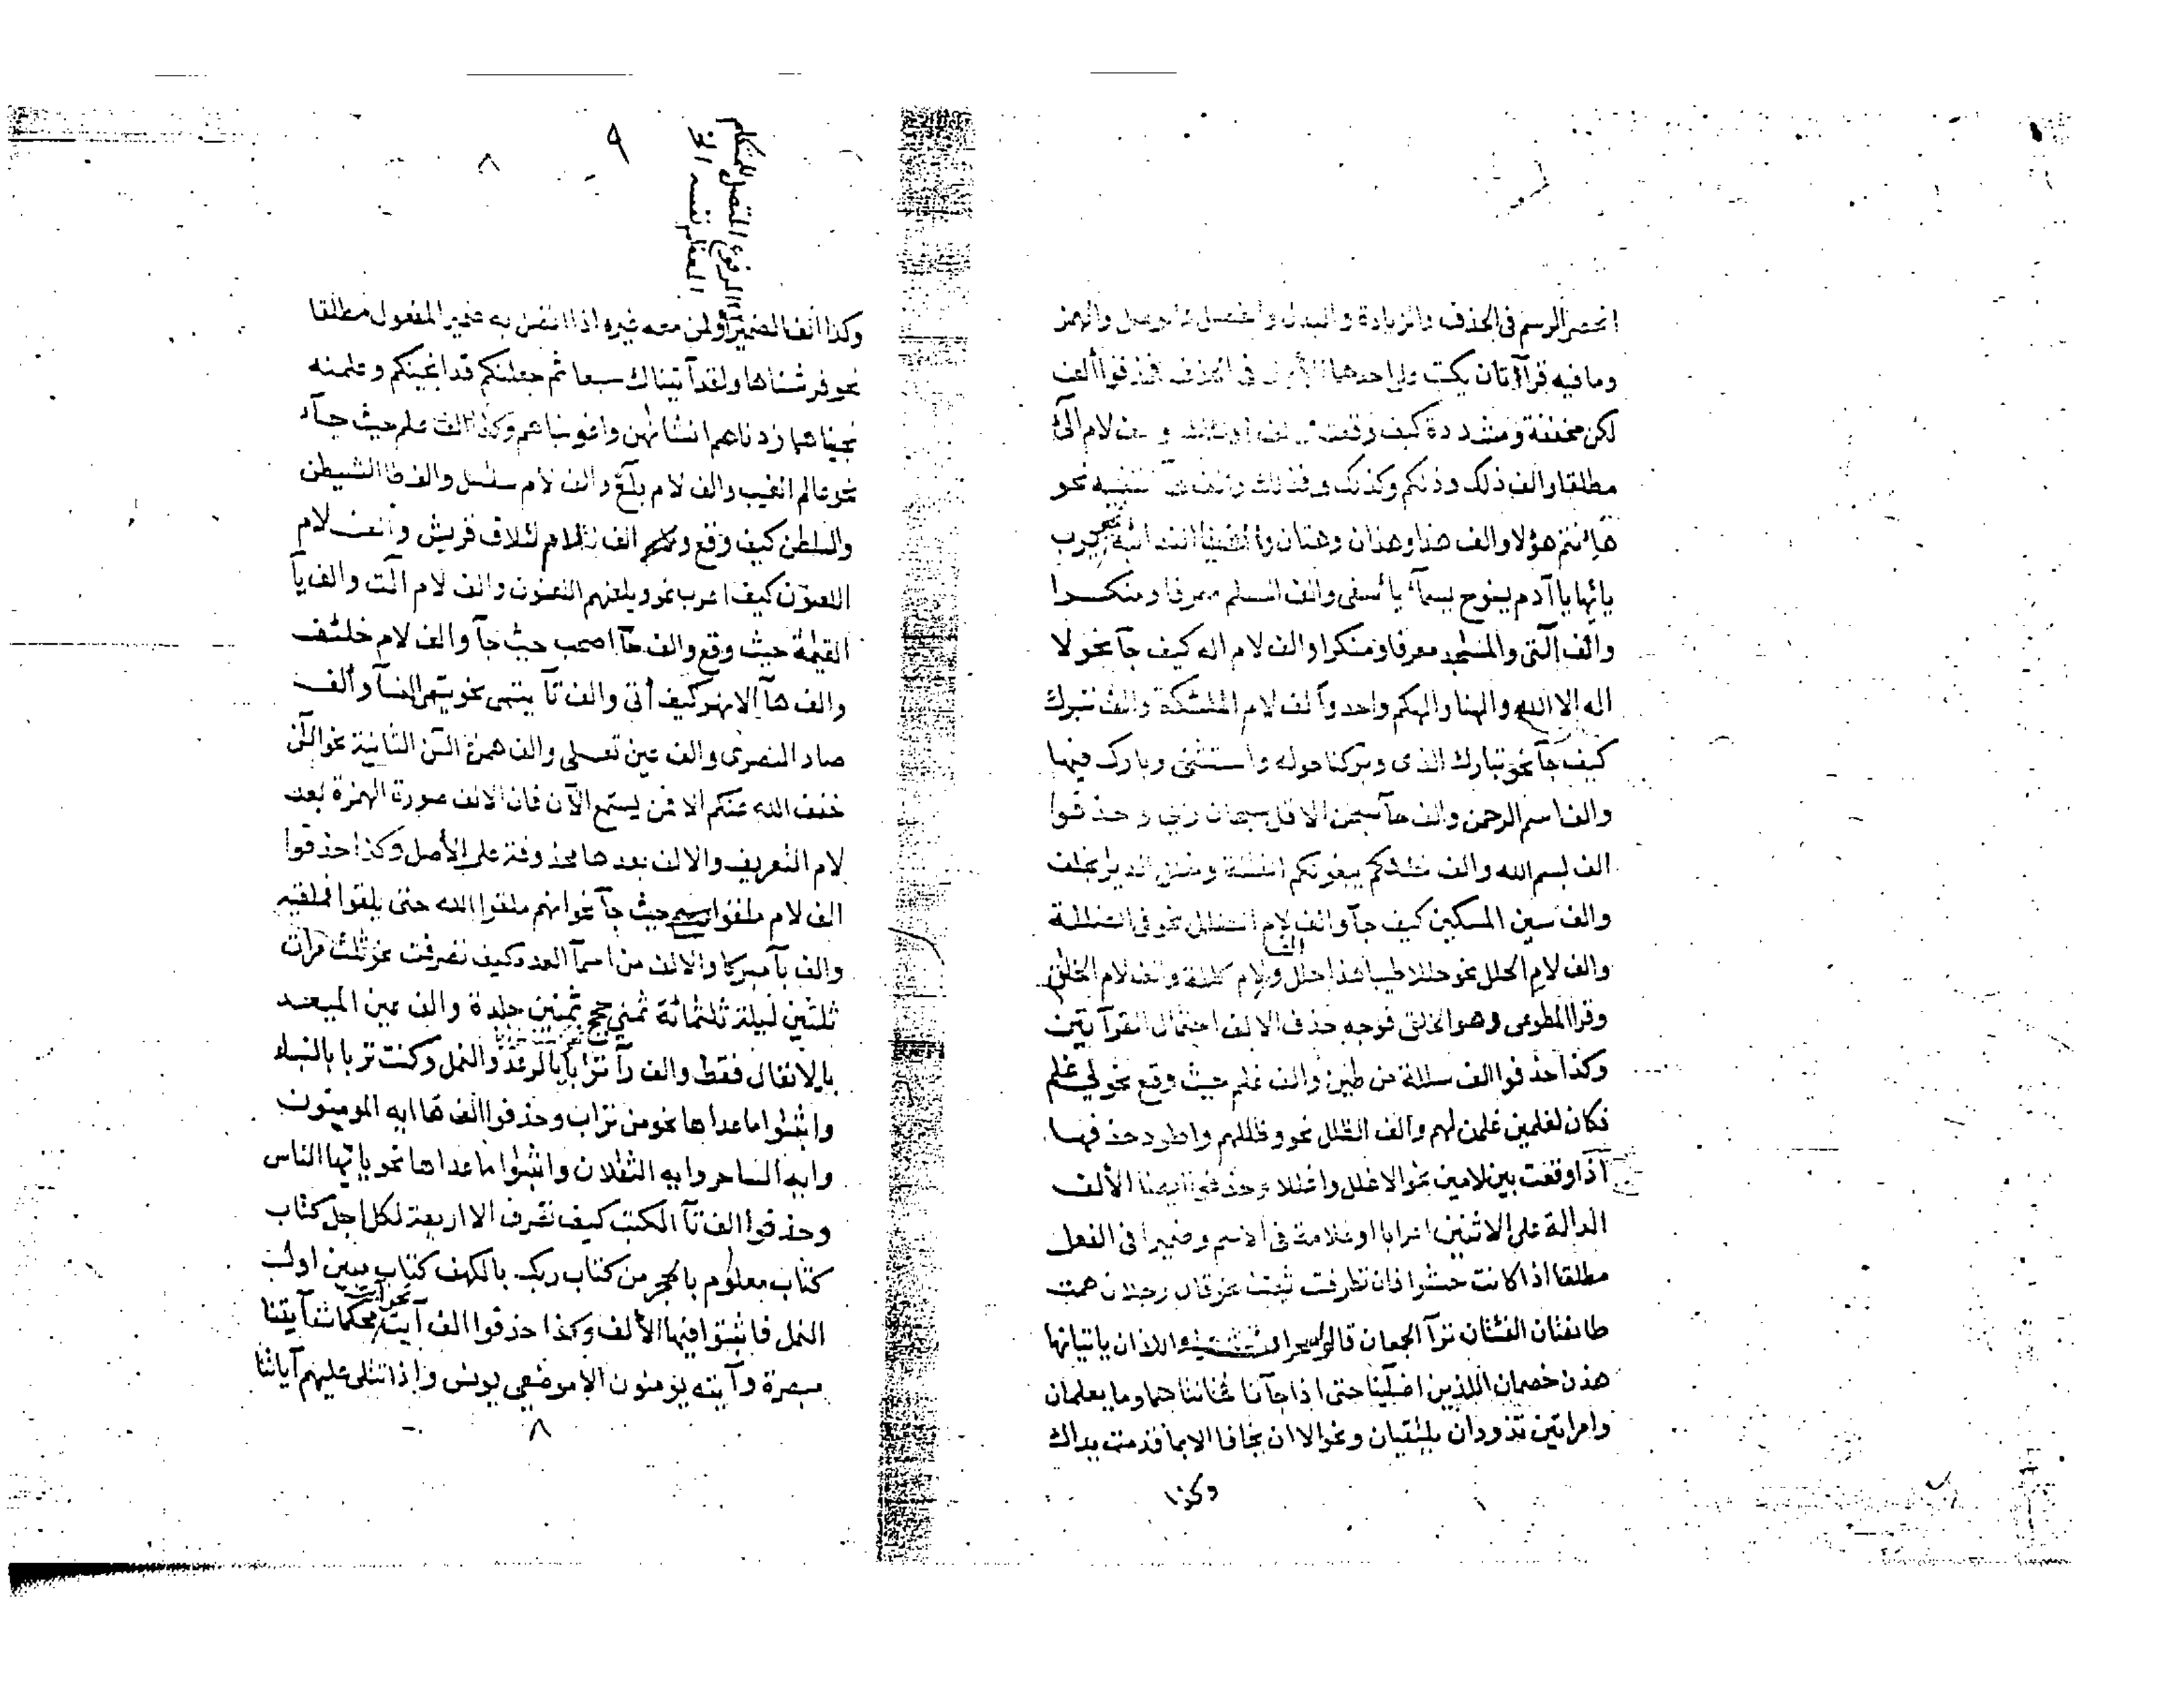 انحصر الرسم في الحذف والزيادة والبدل والفصل والوصل والهمز
وما فيه قرآءتان يكتب على احدهما الأول في الحذف فحذفوا ألف
لكن مخففة ومشددة كيف وقعت والف لام الئ
مطلقا والف ذلك وذلكم وكذلك وفذلك والف ها تنبيه نحو
هأنتم هؤلا والف هذا وهذان وهتان والف يا الندائية نحو يرب
يأيها يا آدم ينوح يسمآء يأسفى والف السلم معرفا ومنكرا
والف الّتى والمسجد معرفا ومنكرا والف لام اله كيف جآ نحو لا
اله الا الله والهنا والهكم واحد وألف لام الملئكة والف تبرك
كيف جآ نحو تبارك الذى وبركنا حوله واستثنى وبارك فيها
والف اسم الرحمن والف حآ سبحن الا قل سبحان ربي وحذفوا
الف بسم الله والف خللكم يبغونكم الفتنة وخلل الديار بخلف
والف سين المسكين كيف جآ والف لام الضلل نحو في الضللة
والف لام الحلل نحو حللا طيبا هذا حلل والف لام كللة والف لام الخلق
وقرا المطوعى وهو الخلق فوجه حذف الالف احتمال القرآءتين
وكذا حذفوا الف سللة من طين والف غلم حيث وقع نحو لي غلم
فكان لغلمين غلمن لهم والف الظلل نحو وظللهم واطرد حذفها
اذا وقعت بين لامين نحو الاغلل واغللا وحذفوا ايضا الألف
الدالة على الاثنين اعرابا او علامة في الاسم وضميرا في الفعل
مطلقا اذا كانت حشوا فان تطرفت ثبتت نحو قال رجلان همت
طائفتان الفئتان ترآ الجمعان قالوا سحران واللذان ياتيانها
هذن خصمان اللذين اضلّنا حتى اذا جآنا فخانتاهما وما يعلمان
وامراتين تذودان يلتقيان ونحو الا ان يخافا الا بما قدمت يداك
وكذا
٩
المرفوع المتصل للمتكلم
المعظم نفسه الخ
وكذا الف الضمير او لمن معه غيره اذا اتصل به ضمير المفعول مطلقا
نحو فرشناها ولقد آتيناك سبعا ثم جعلنكم قد انجينكم وعلمنه
نجيناهما زدناهم انشانهن واغويناهم وكذا الف علم حيث جآء
نحو عالم الغيب والف لام بلغ والف لام سلسل والف طا الشيطن
والسلطن كيف وقع والف لام لئلاف قريش والف لام
اللعنون كيف اعرب نحو ويلعنهم اللعنون والف لام الّت والف يآ
القيمة حيث وقع والف حآ اصحب حيث جآ والف لام خلئف
والف هآ الانهر كيف أتى والف تآ يتمى نحو يتمى النسآ والف
صاد النصرى والف عين تعلى والف همزة الئن الثانية نحو الئن
خفف الله عنكم الا فمن يستمع الآن فان الالف صورة الهمزة بعد
لام التعريف والالف بعدها محذوفة على الأصل وكذا حذفوا
الف لام ملقوا حيث جآ نحو انهم ملقوا الله حتى يلقوا فملقيه
والف بآ مبركا والالف من اسمآ العدد كيف تصرفت نحو ثلث مرات
ثلثين ليلة ثلثمائة ثمني حجج ثمنين جلدة والف عين الميعد
بالانفال فقط والف رآ ترابا بالرعد والنمل وكنت تربا بالنبا
واثبتوا ما عداها نحو من تراب وحذفوا الف ها ايه المومنون
وايه الساحر وايه الثقلان واثبتوا ما عداها نحو يايّها الناس
وحذفوا الف تآ الكتب كيف تصرف الا اربعة لكل اجل كتاب
كتاب معلوم بالحجر من كتاب ربك بالكهف كتاب مبين اول
النمل فاثبتوا فيها الألف وكذا حذفوا الف آيت نحو آيت محكمات آيتنا
مبصرة وآيته يؤمنون الا موضعي يونس واذا تتلى عليهم آياتنا
٨